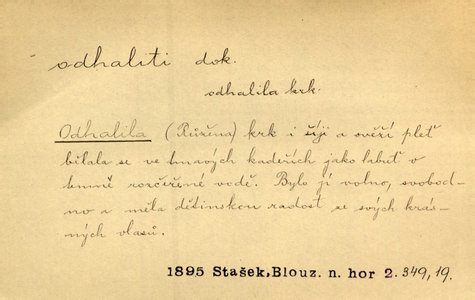 odhaliti dok.
odhalila krk.
Odhalila (Růžena) krk i šíji a svěží pleť
bělala se ve tmavých kadeřích jako labuť v
temně rozčeřené vodě. Bylo jí volno, svobod-
no a měla dětinskou radost ze svých krás-
ných vlasů.
1895 Stašek, Blouz. n. hor 2. 349, 19.